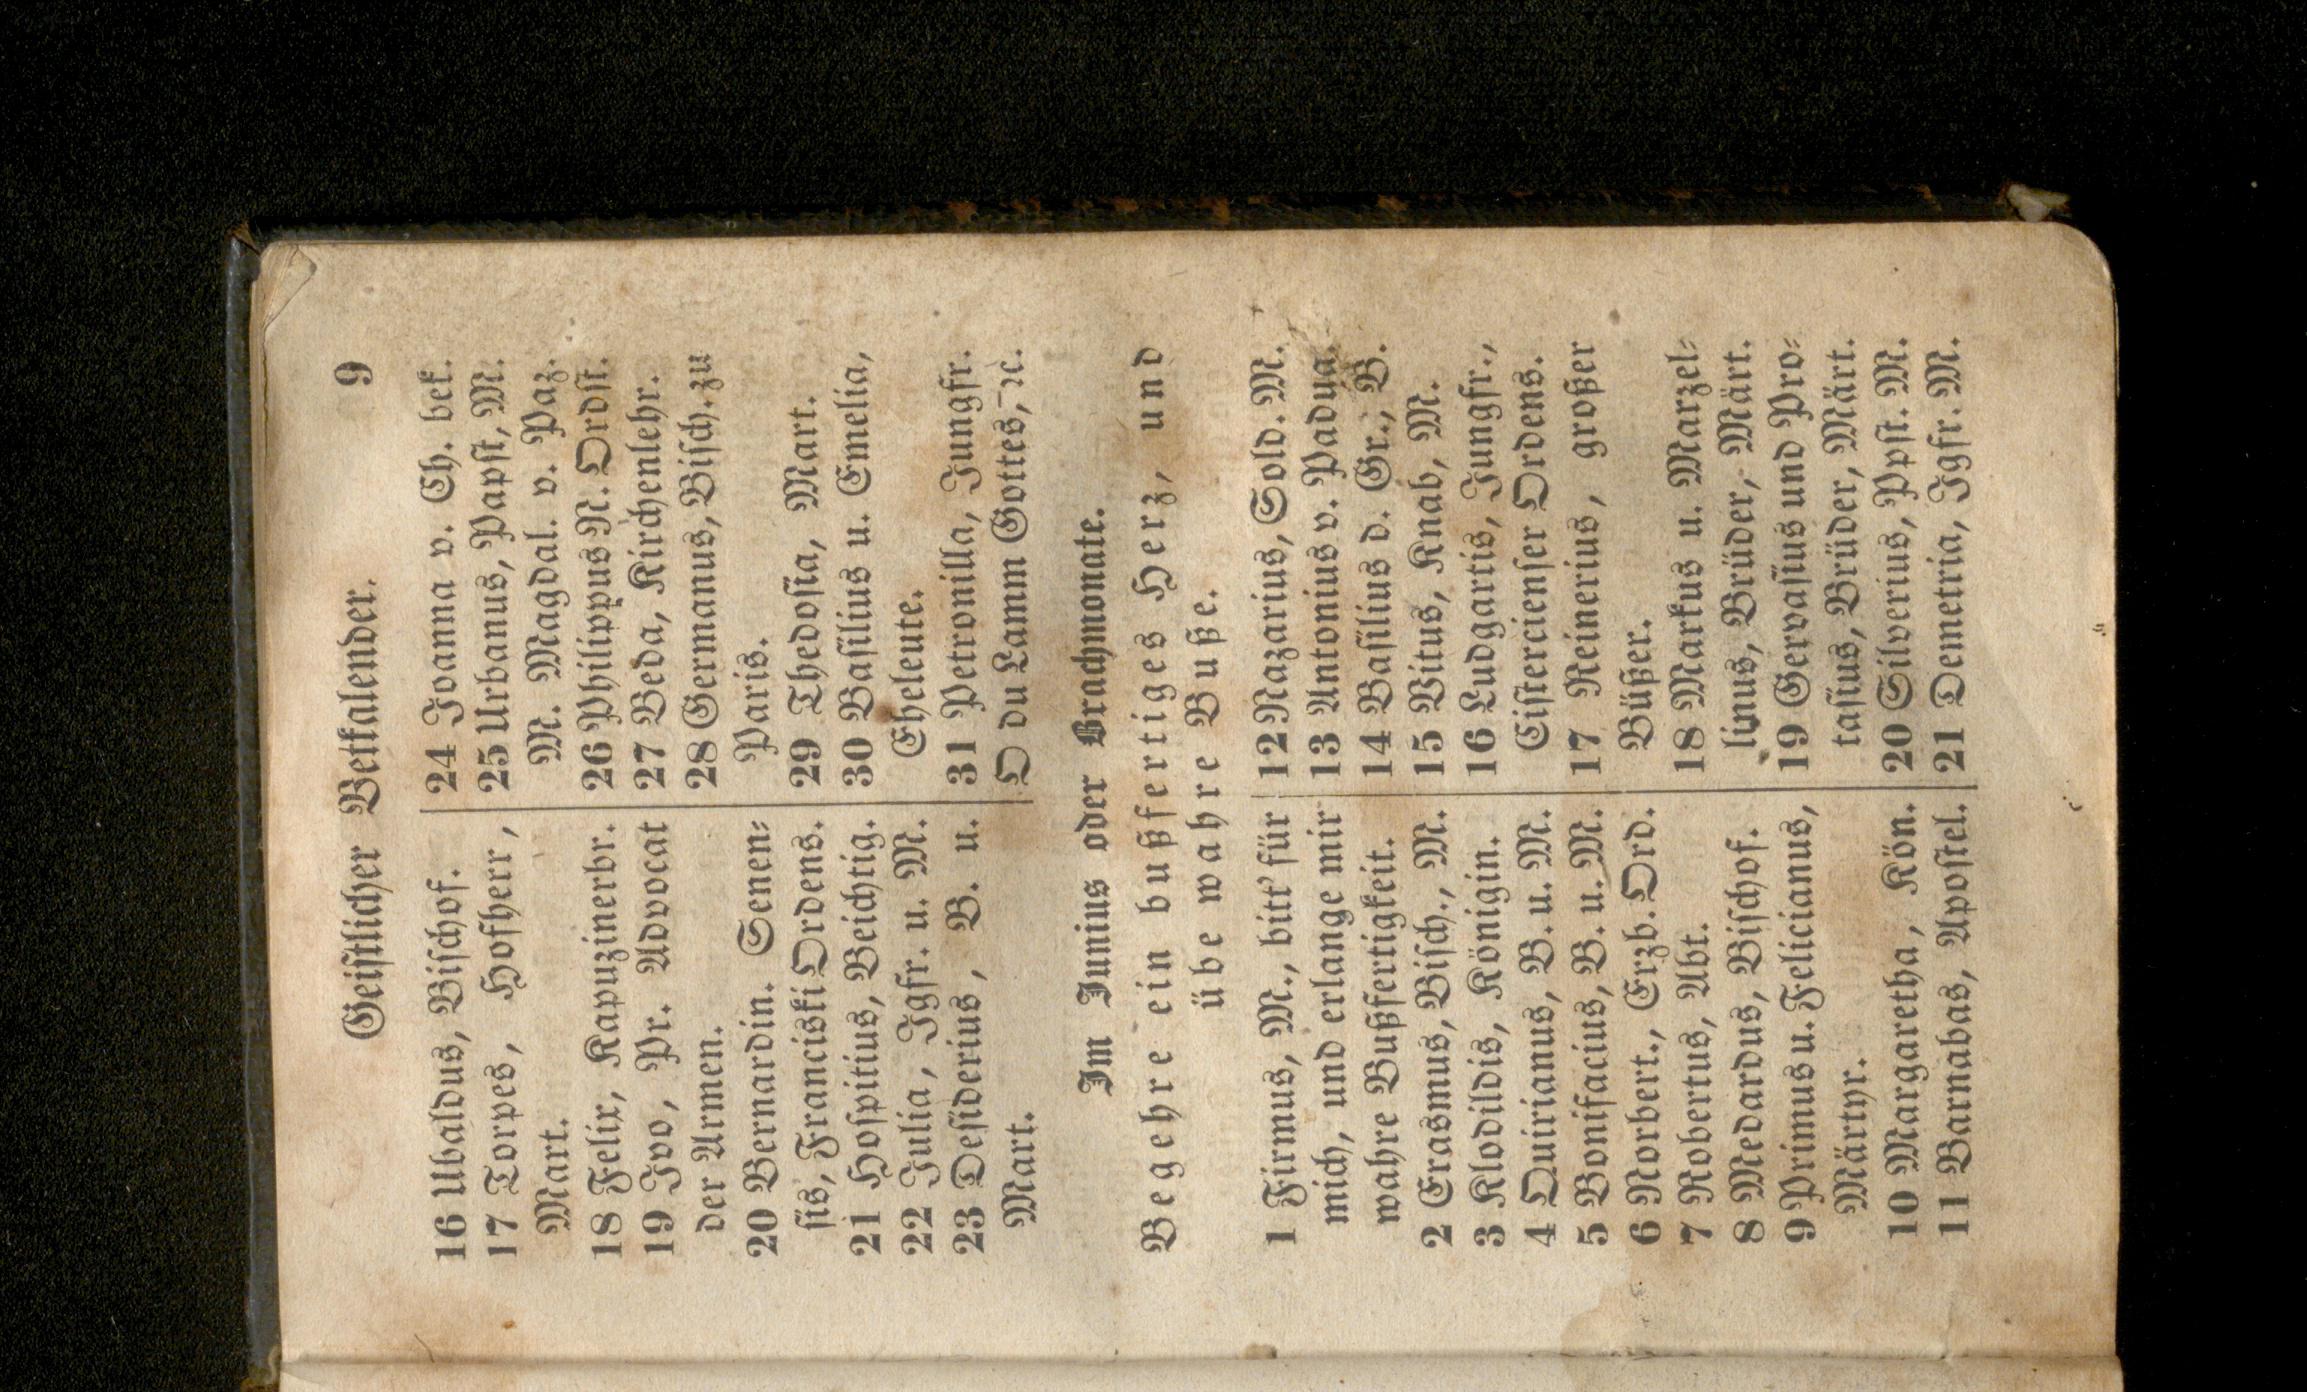 Geistlicher Betkalender. 9
16 Ubaldus, Bischof.
17 Torpes, Hofherr,
Mart.
18 Felix, Kapuzinerbr.
19 Ivo, Pr. Advocat
der Armen.
20 Bernardin. Senen-
sis, Franciski Ordens.
21 Hospitius, Beichtig.
22 Julia, Igfr. u. M.
23 Desiderius, B. u.
Mart.
24 Joanna v. Ch. bek.
25 Urbanus, Papst, M.
M. Magdal. v. Paz.
26 Philippus N. Ordst.
27 Beda, Kirchenlehr.
28 Germanus, Bisch. zu
Paris.
29 Thedosia, Mart.
30 Basilius u. Emelia,
Eheleute.
31 Petronilla, Jungfr.
O du Lamm Gottes, ꝛc.
Im Junius oder Brachmonate.
Begehre ein bußfertiges Herz, und
übe wahre Buße.
1 Firmus, M., bitt' für
mich, und erlange mir
wahre Bußfertigkeit.
2 Erasmus, Bisch., M.
3 Klodildis, Königin.
4 Quirianus, B. u. M.
5 Bonifacius, B. u. M.
6 Norbert., Erzb. Ord.
7 Robertus, Abt.
8 Medardus, Bischof.
9 Primus u. Felicianus,
Märtyr.
10 Margaretha, Kön.
11 Barnabas, Apostel.
12 Nazarius, Sold. M.
13 Antonius v. Padua.
14 Basilius d. Gr., B.
15 Vitus, Knab, M.
16 Ludgartis, Jungfr.,
Cistercienser Ordens.
17 Reinerius, großer
Büßer.
18 Markus u. Marzel-
linus, Brüder, Märt.
19 Gervasius und Pro-
tasius, Brüder, Märt.
20 Silverius, Ppst. M.
21 Demetria, Igfr. M.